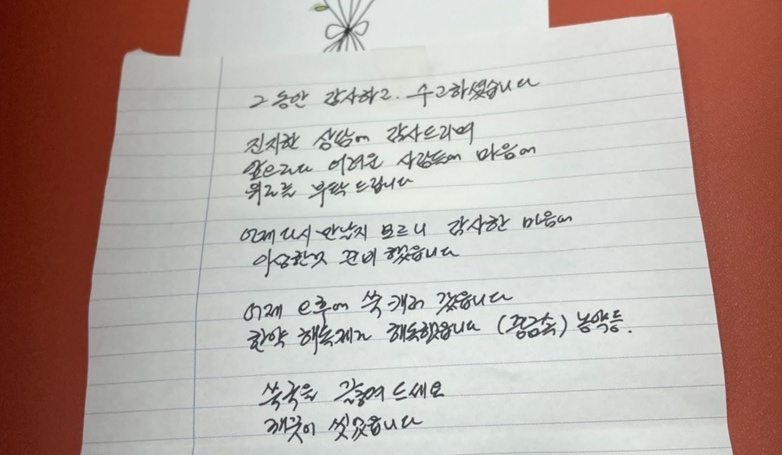 그 동안 감사하고. 수고하셨습니다
진지한 상담에 감사드리며
앞으로도 어려운 사람들에 마음에
위로를 부탁드립니다
언제 다시 만날지 모르니 감사한 마음에
준비 했습니다
어제 오후에 쑥 캐러 갔습니다
한약 해독제로 해독했습니다 (중금속) 농약등.
쑥국을 끓여 드세요
깨끗이 씻었습니다